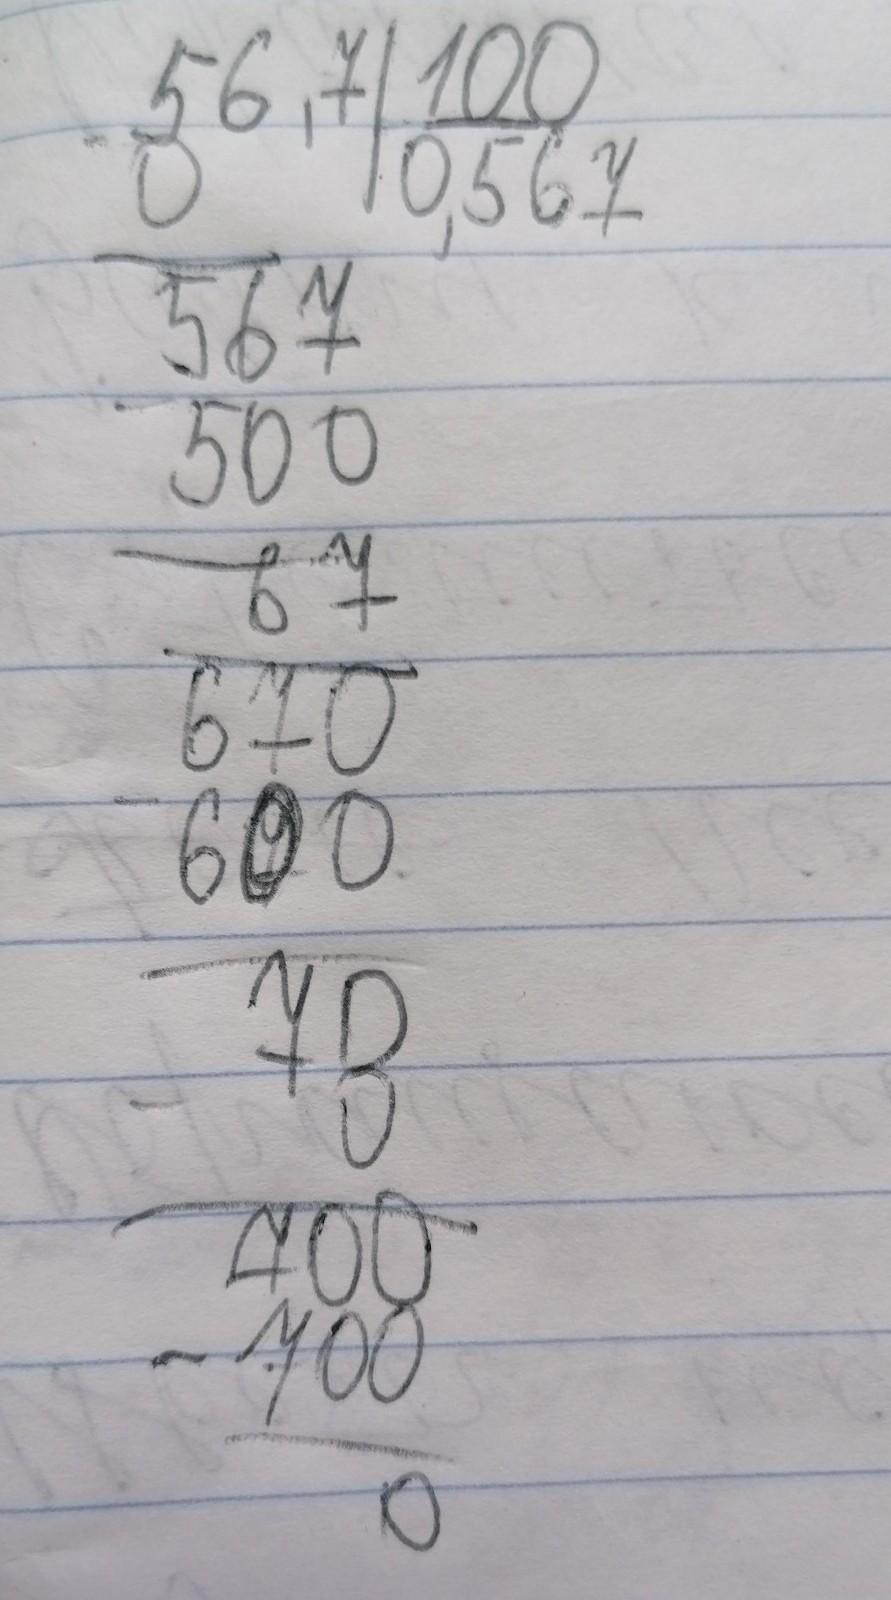 56,7|100
- 0 |0,567
567
- 500
67
670
- 600
70
- 0
700
- 700
0